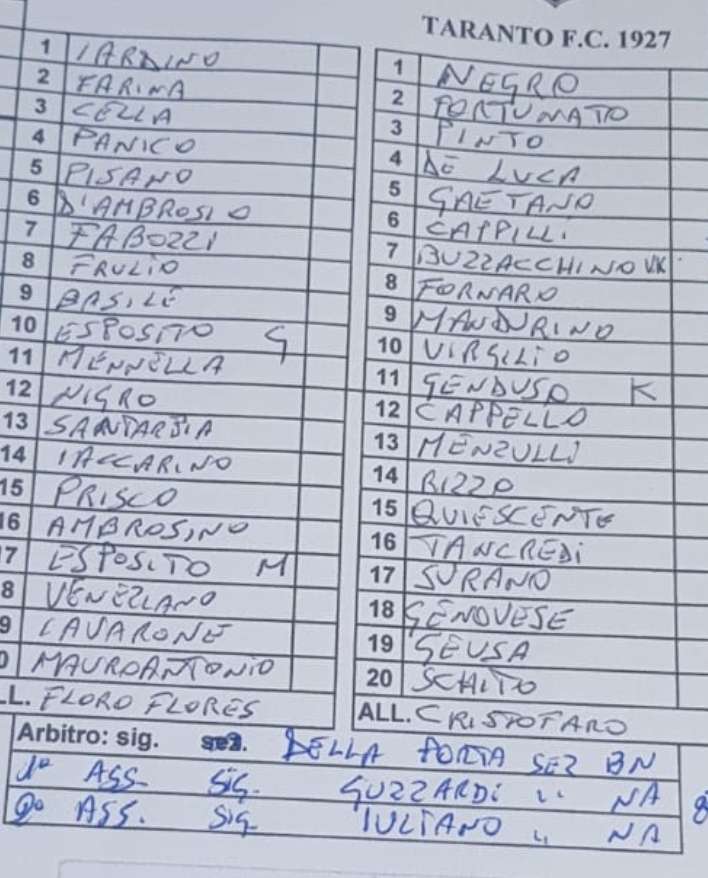 TARANTO F.C. 1927
1 IARDINO
2 FARINA
3 CELLA
4 PANICO
5 PISANO
6 D'AMBROSIO
7 FABOZZI
8 FRULIO
9 BASILE
10 ESPOSITO G
11 MENNELLA
12 NIGRO
13 SANTARSIA
14 IACCARINO
15 PRISCO
16 AMBROSINO
7 ESPOSITO M
8 VENEZIANO
9 CAVARONE
0 MAUROANTONIO
LL. FLORO FLORES
1 NEGRO
2 FORTUNATO
3 PINTO
4 DE LUCA
5 GAETANO
6 CAPPILLI
7 BUZZACCHINO VK
8 FORNARO
9 MANDURINO
10 VIRGILIO
11 GENDUSO K
12 CAPPELLO
13 MENZULLI
14 RIZZO
15 QUIESCENTE
16 TANCREDI
17 SURANO
18 GENOVESE
19 GEUSA
20 SCHITO
ALL. CRISTOFARO
Arbitro: sig. DELLA PORTA SEZ BN
1° ASS. SIG. GUZZARDI " NA
2° ASS. SIG IULIANO " NA